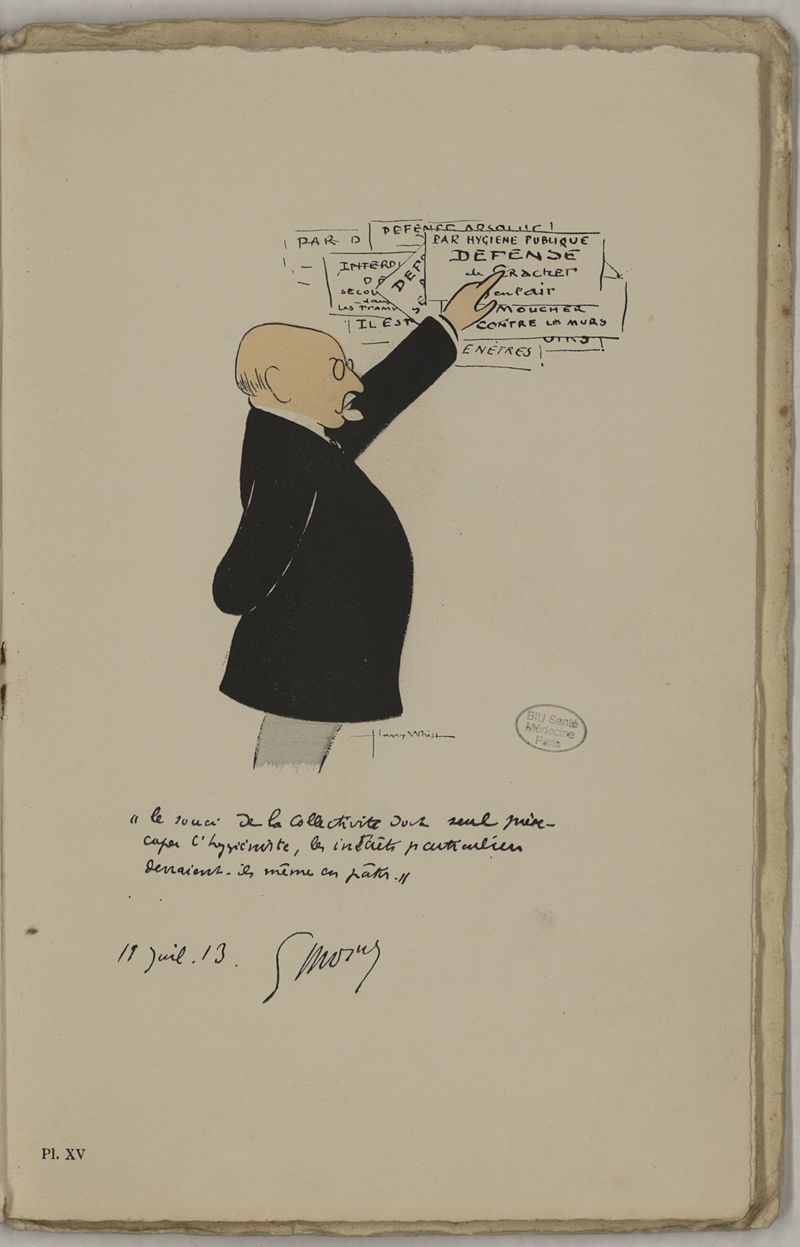 DEFENSE ABSOLUE!
PAR D
PAR HYGIENE PUBLIQUE
DEFENSE
de Cracher
en l'air
MOUCHER
CONTRE LES MURS
INTERDI
DE
SECOU
dans
LES TRAMW
DEFE
IL EST
ENÊTRES
Harry Whist
BIU Santé
Médecine
Paris
"le souci de la collectivité doit seul préoc-
cuper l'hygiéniste, les intérêts particuliers
devraient-ils même en pâtir."
19 Juil. 13.
Pl. XV